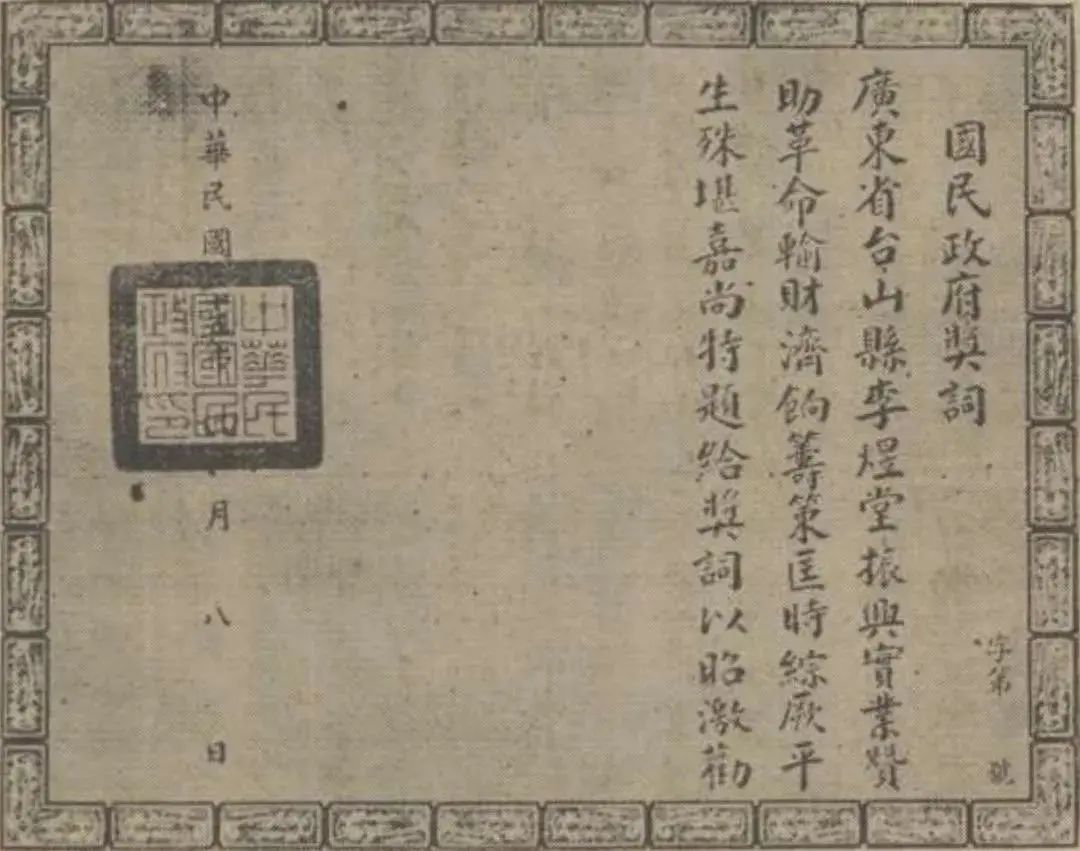 國民政府獎詞
字第 號
廣東省台山縣李煜堂振興實業贊
助革命輸財濟餉籌策匡時綜厥平
生殊堪嘉尚特題給獎詞以昭激勸
中華民國 月八日
中華民國國民政府印